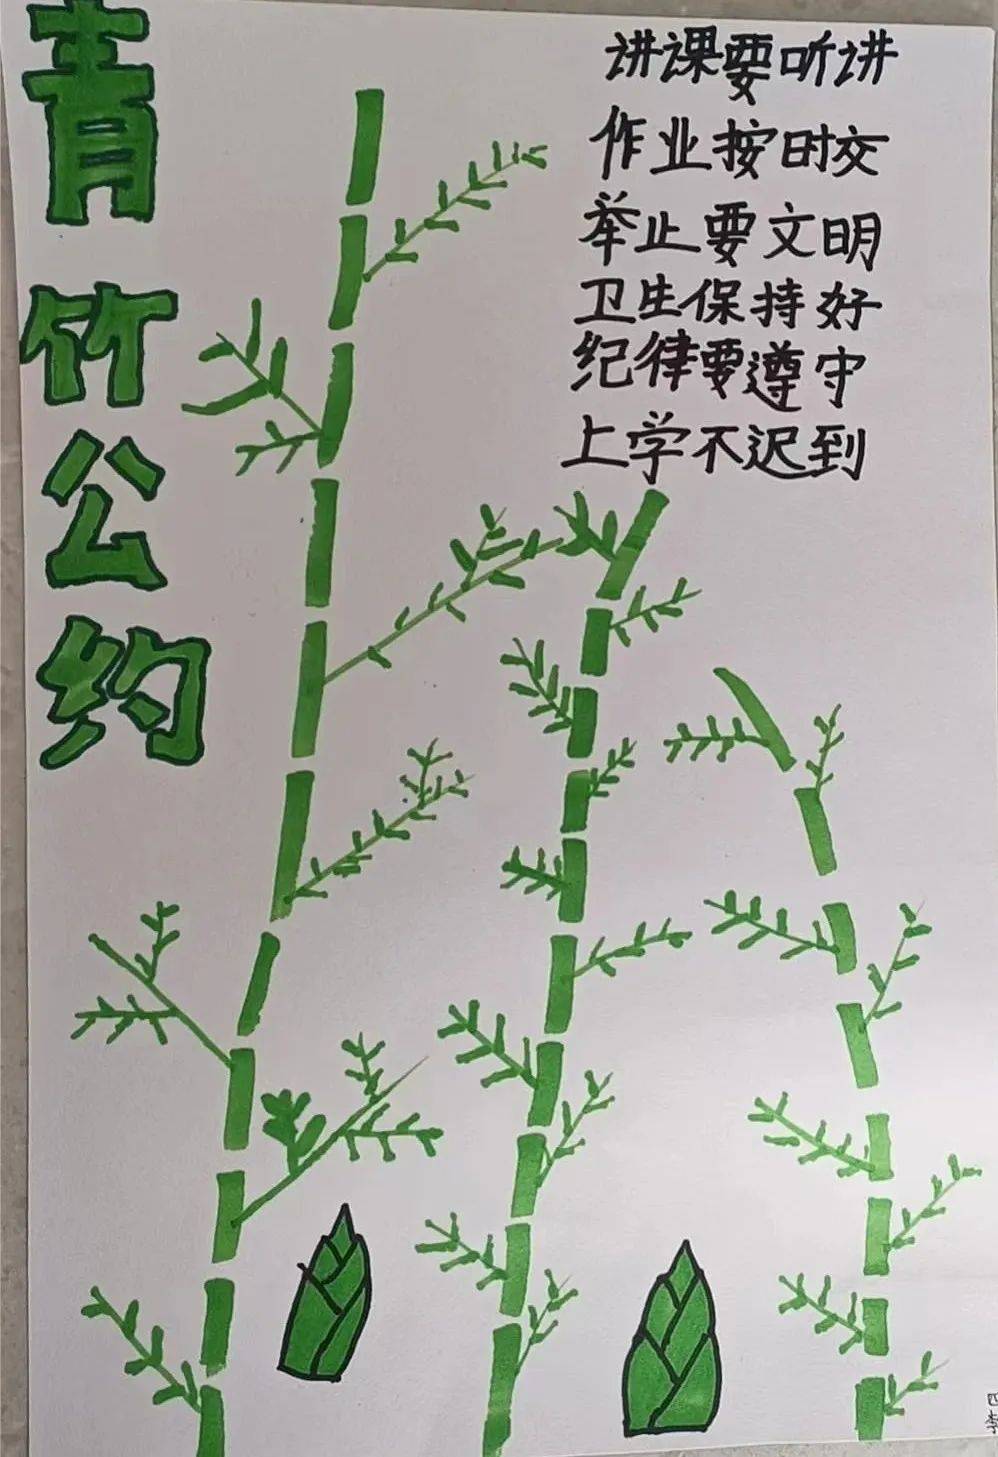 青竹公约
讲课要听讲
作业按时交
举止要文明
卫生保持好
纪律要遵守
上学不迟到